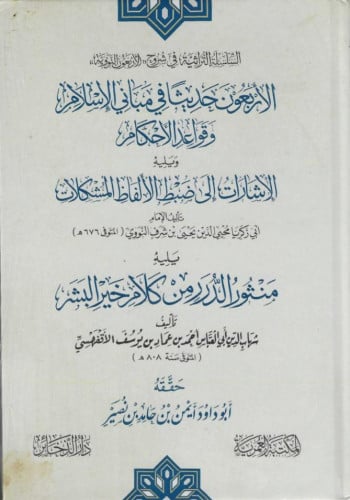 السلسلة التراثية في شروح «الأربعون النووية»
الأربعون حديثا في مباني الإسلام
وقواعد الأحكام
ويليه
الإشارات إلى ضبط الألفاظ المشكلات
تأليف الإمام
أبي زكريا محيي الدين يحيى بن شرف النووي (المتوفى ٦٧٦ هـ)
يليه
منثور الدرر من كلام خير البشر
تأليف
شهاب الدين أبي العباس أحمد بن عماد بن يوسف الأقفهسي
(المتوفى سنة ٨٠٨ هـ)
حققه
أبو داود أيمن بن حامد بن نصير
المكتبة العمرية
دار الذخائر